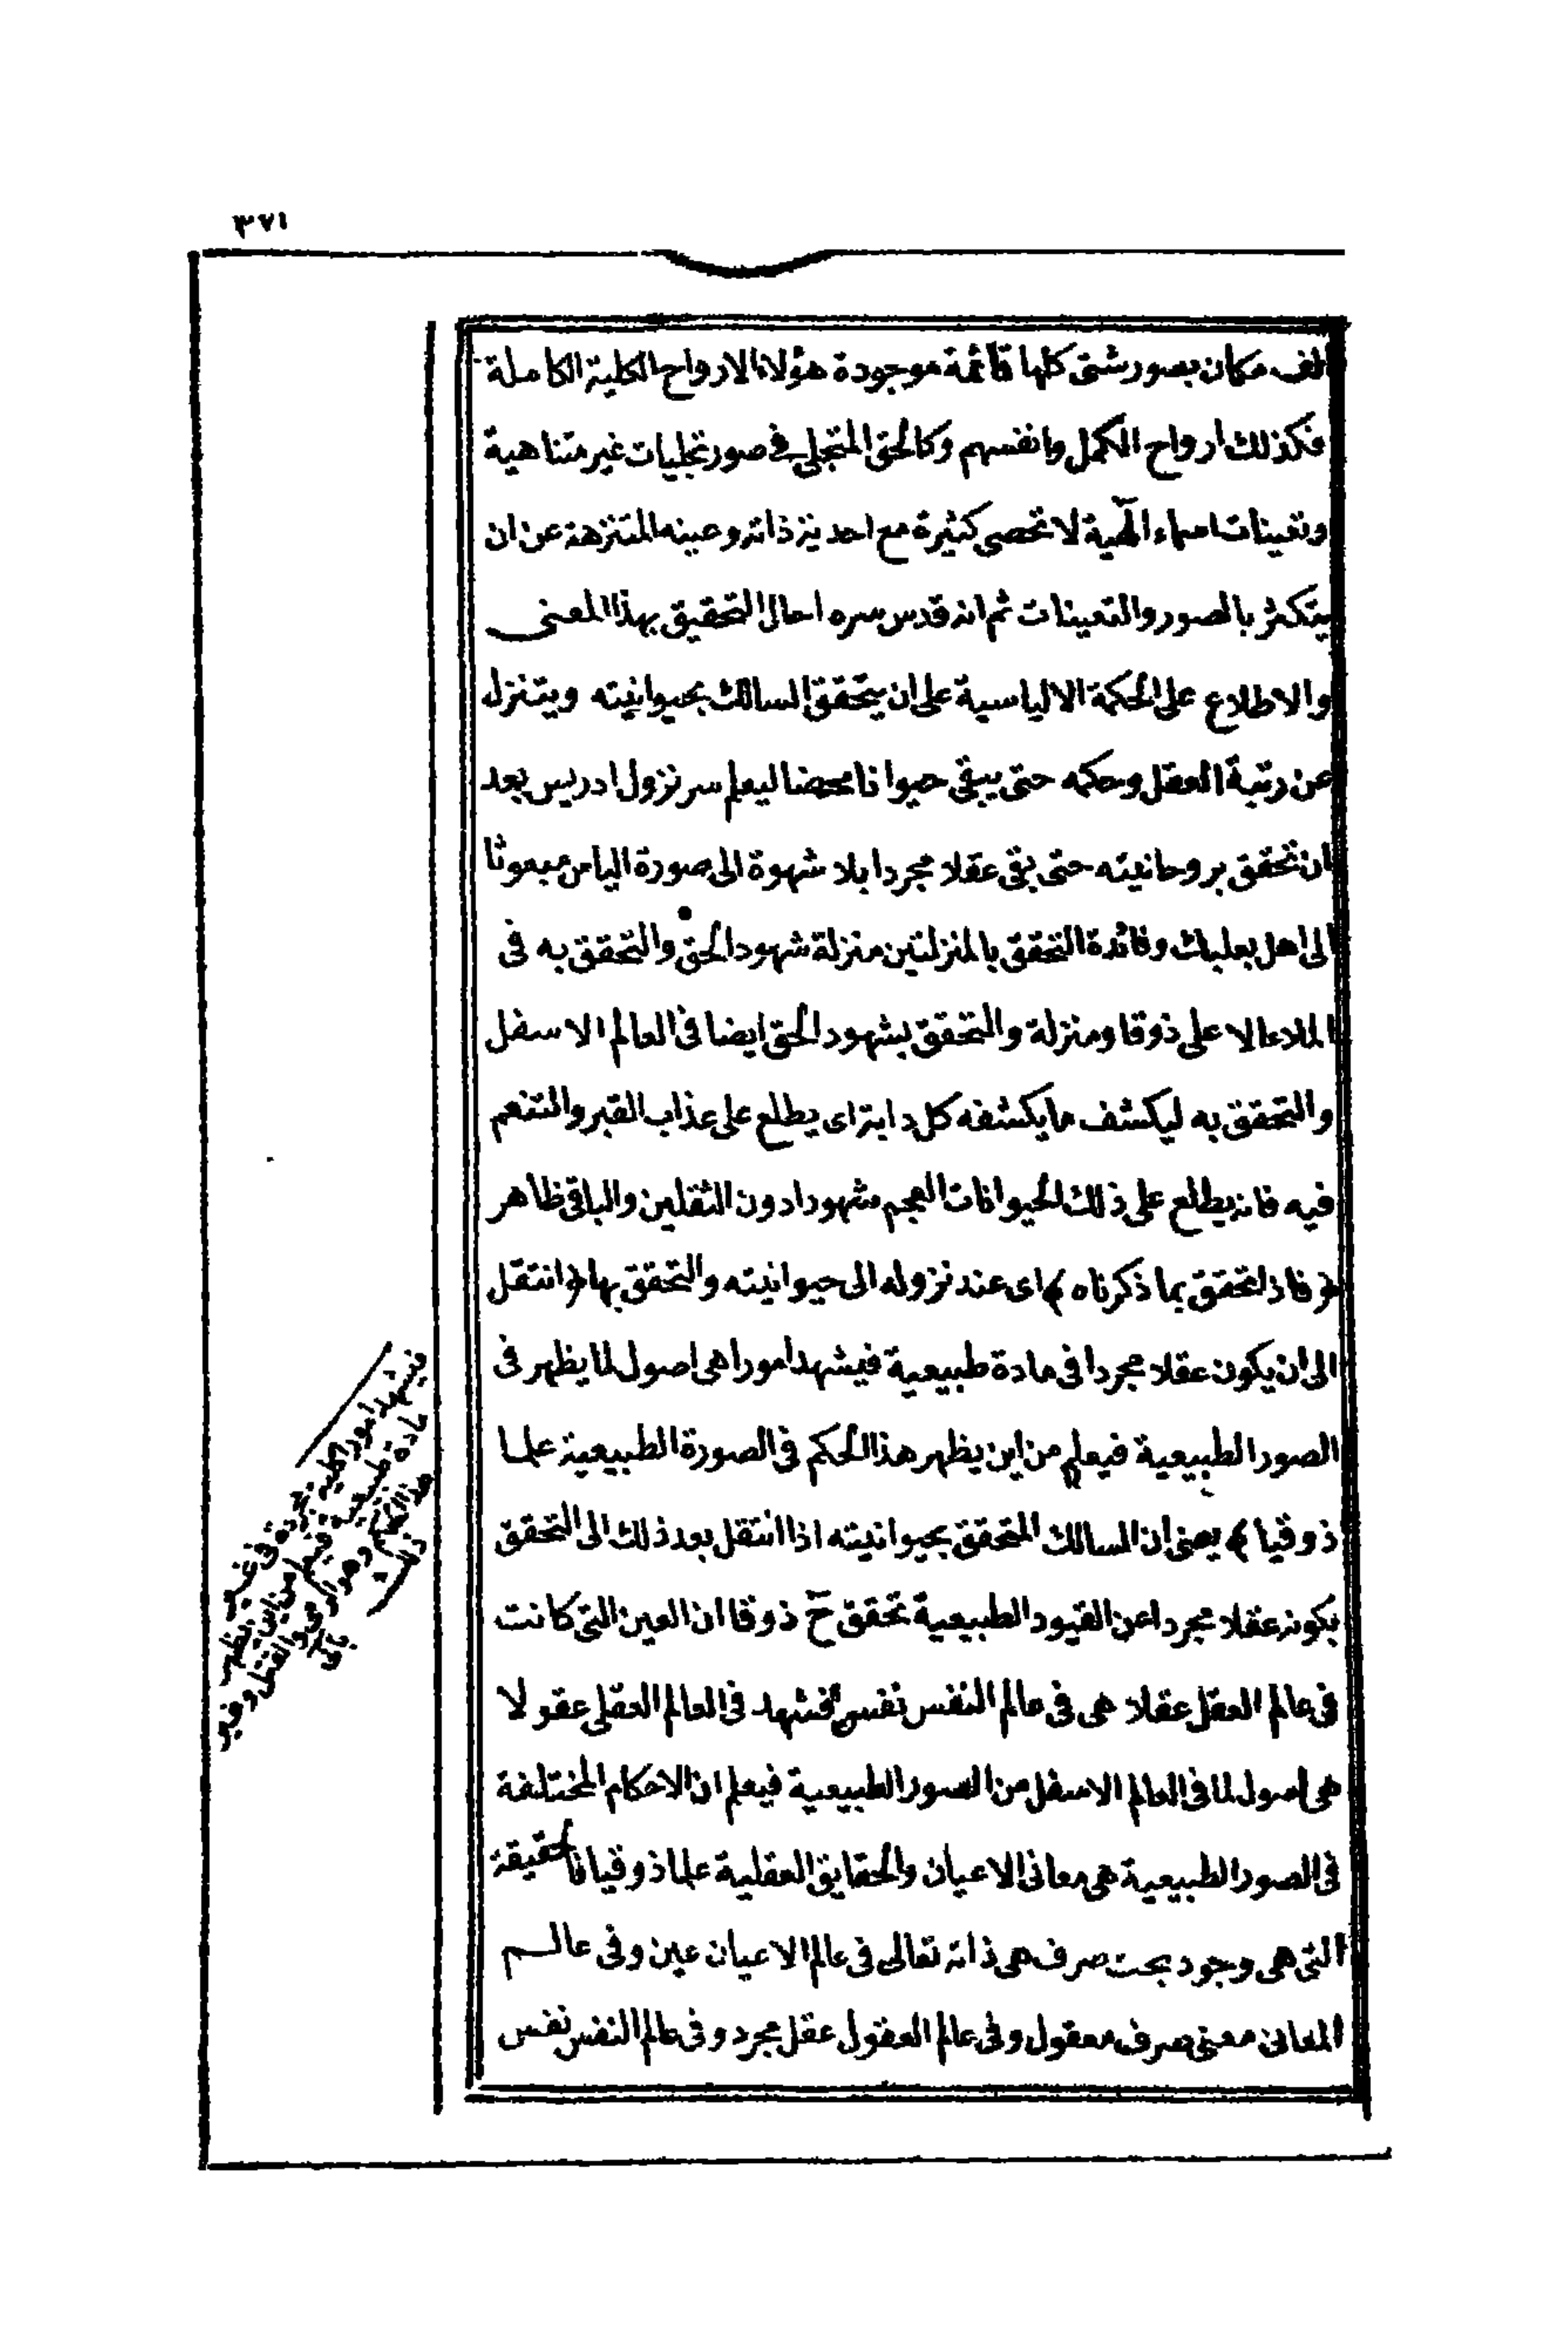 ٣٧١
الف مكان بصور شتى كلها قائمة موجودة هؤلاء الارواح الكلية الكاملة
فكذلك ارواح الكمل وانفسهم وكالحق المتجلى فى صور تجليات غير متناهية
وتعينات اسماء الٓهية لا تحصى كثيرة مع احدية ذاته وعينه المتنزهة عن ان
يتكثر بالصور والتعينات ثم انه قدس سره احال التحقيق بهذا المعنى
والاطلاع على الحكمة الالياسية على ان يتحقق السالك بحيوانيته ويتنزل
عن رتبة العقل وحكمه حتى يبقى حيوانا محضا ليعلم سر نزول ادريس بعد
ان تحقق بروحانيته حتى بقى عقلا مجردا بلا شهوة الى صورة الياس مبعوثا
الى اهل بعلبك وفائدة التحقق بالمنزلتين منزلة شهود الحق والتحقق به فى
الملاء الاعلى ذوقا ومنزلة والتحقق بشهود الحق ايضا فى العالم الاسفل
والتحقق به ليكشف ما يكشفه كل دابة اى يطلع على عذاب القبر والتنعم
فيه فانه يطلع على ذلك الحيوانات العجم شهودا دون الثقلين والباقى ظاهر
﴿ فاذا تحقق بما ذكرناه ﴾ اى عند نزوله الى حيوانيته والتحقق بها ﴿ انتقل
الى ان يكون عقلا مجردا فى مادة طبيعية فيشهد امورا هى اصول لما يظهر فى
الصور الطبيعية فيعلم من اين يظهر هذا الحكم فى الصورة الطبيعية علما
ذوقيا ﴾ يعنى ان السالك المتحقق بحيوانيته اذا انتقل بعد ذلك الى التحقق
بكونه عقلا مجردا عن القيود الطبيعية تحقق ح ذوقا ان العين التى كانت
فى عالم العقل عقلا هى فى عالم النفس نفس فشهد فى العالم العقلى عقولا
هى اصول لما فى العالم الاسفل من الصور الطبيعية فيعلم ان الاحكام المختلفة
فى الصور الطبيعية هى معانى الاعيان والحقايق العقلية علما ذوقيا فالحقيقة
التى هى وجود بحت صرف هى ذاته تعالى فى عالم الاعيان عين وفى عالم
المعانى معنى صرف معقول وفى عالم العقول عقل مجرد وفى عالم النفس نفس
فيشهد امورا كلية مجردة فى غير
مادة طبيعية فيعلم من اين يظهر